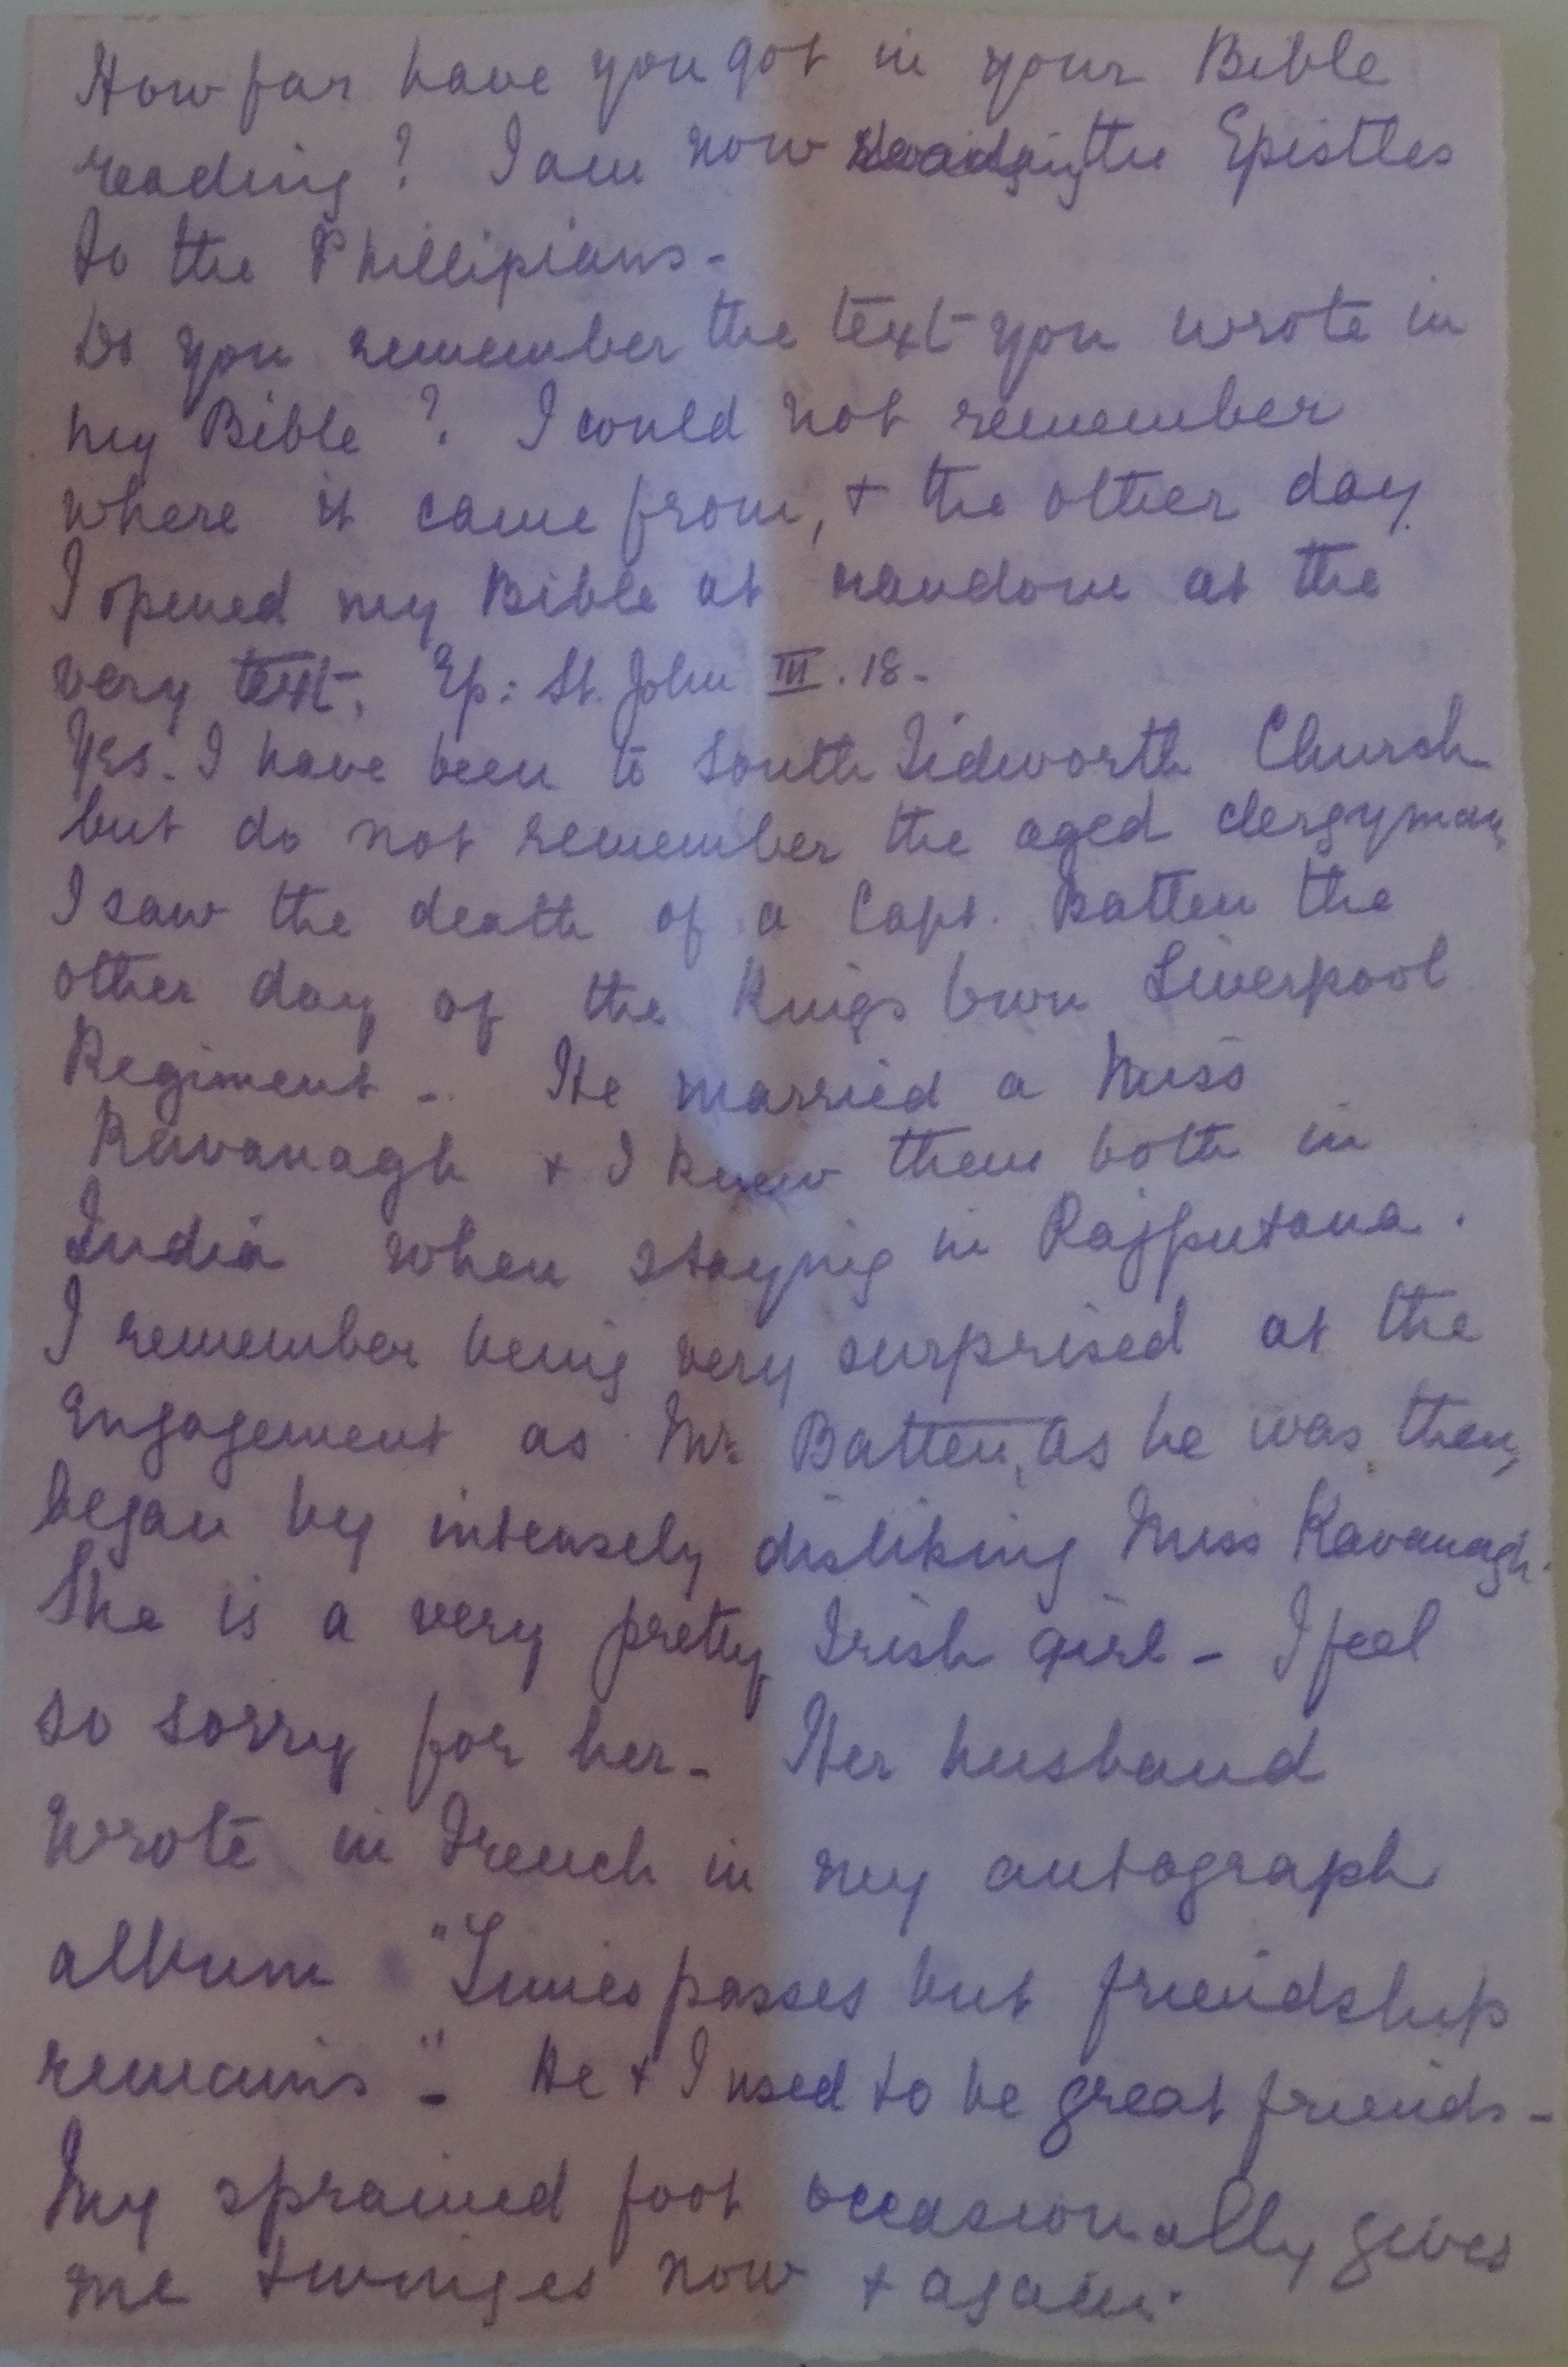 How far have you got in your Bible
reading? I am now reading the Epistles
to the Phillipians -
Do you remember the text you wrote in
my Bible? I could not remember
where it came from, + the other day
I opened my Bible at random at the
very text. Ep: St. John III. 18 -
Yes. I have been to South Tidworth Church
but do not remember the aged clergyman,
I saw the death of a Capt. Batten the
other day of the Kings Own Liverpool
Regiment - He married a Miss
Kavanagh + I knew them both in
India when staying in Rajputana.
I remember being very surprised at the
Engagement as Mr Batten, as he was then,
began by intensely disliking Miss Kavanagh.
She is a very pretty Irish girl - I feel
so sorry for her - Her husband
wrote in French in my autograph
album "Times passes but friendship
remains" - He + I used to be great friends -
My sprained foot occasionally gives
me twinges now + again.